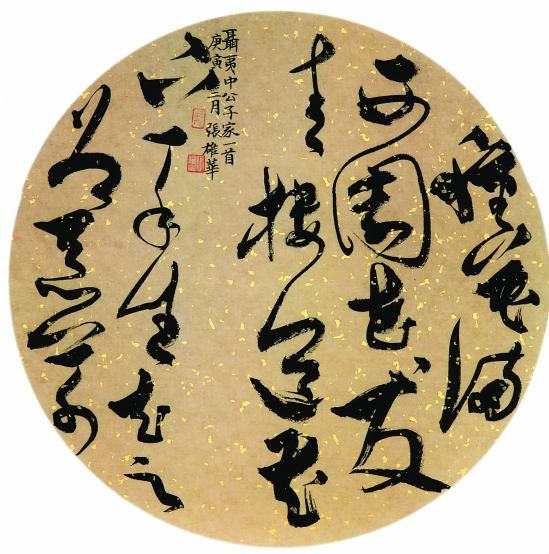 種花滿
西園花發
青樓道花
下一禾生去之
為惡草
聶夷中公子家一首
庚寅三月 張雄華